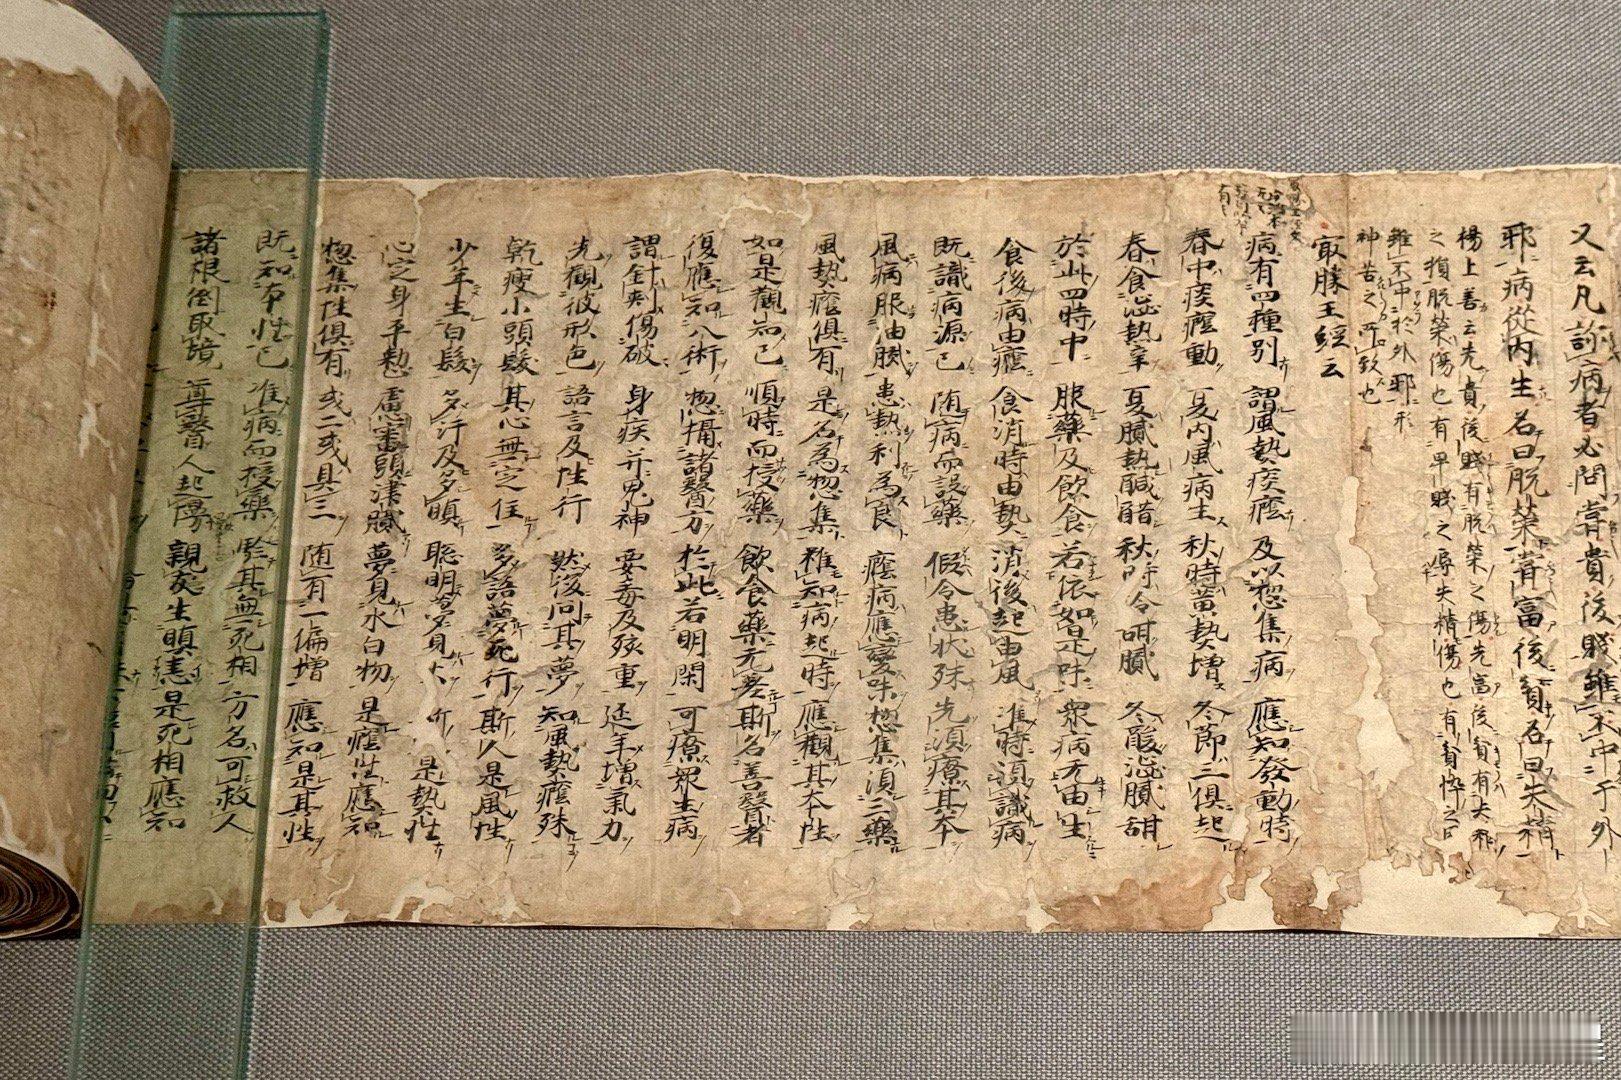 又云凡診病者必問甞貴後賤雖不中于外
耶病從内生名曰脱榮甞富後貧名曰失精
楊上善云先貴後賤有脱榮之傷先富後貧有失精
之損脱榮傷也有卑賤之辱失精傷也有貧悴之
雖不中於外耶形
神苦之所致也
冣勝王經云
病有四種別 謂風熱痰癊 及以惣集病 應知發動時
春中痰癊動 夏内風病生 秋時黄熱增 冬節三俱起
春食澁熱辛 夏膩熱鹹醋 秋時冷甜膩 冬酸澁膩甜
於此四時中 服藥及飲食 若依如是味 衆病无由生
食後病由癊 食消時由熱 消後起由風 准時須識病
既識病源已 随病而設藥 假令患状殊 先須療其本
風病服油膩 患熱利為良 癊病應變味 惣集須三藥
風熱癊俱有 是名為惣集 雖知病起時 應觀其本性
如是觀知已 順時而授藥 飲食藥无差 斯名善醫者
復應知八術 惣攝諸醫方 於此若明閑 可療衆生病
謂針刾傷破 身疾并鬼神 悪毒及孩童 延年增氣力
先觀彼形色 語言及性行 然後問其夢 知風熱癊殊
乾瘦小頭髮 其心無定住 多語夢飛行 斯人是風性
少年生白髮 多汗及多瞋 聡明夢見火 是熱性
心定身平 慮審頭津膩 夢見水白物 是癊性應知
惣集性俱有 或二或具三 随有一偏增 應知是其性
既知本性已 准病而授藥 驗其無死相 方名可救人
諸根倒取境 尊醫人起慢 親友生瞋恚 是死相應知